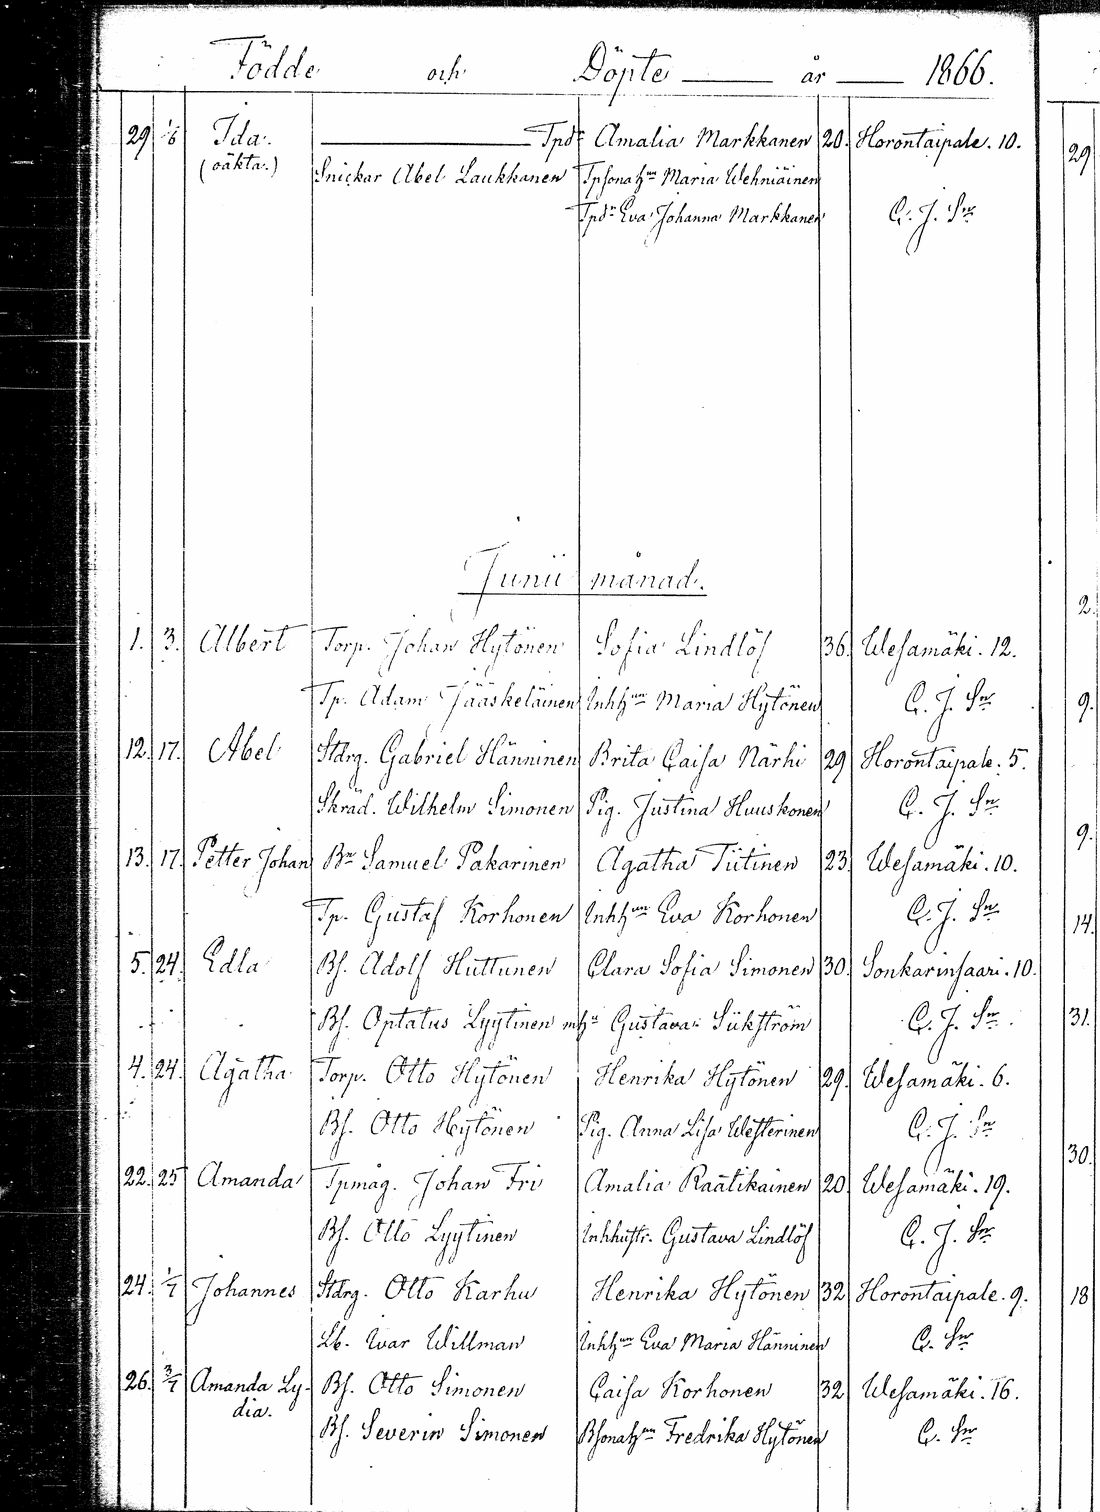 Födde och Döpte år 1866.
29 1/6 Ida. Tpdr Amalia Markkanen 20. Horontaipale. 10.
(oäkta.) Snickar Abel Laukkanen Tpsonahn Maria Wehniäinen
Tpdr Eva Johanna Markkanen C. J. Sn
Junii månad.
1. 3. Albert Torp. Johan Hytönen Sofia Lindlöf 36. Wesamäki. 12.
Tp. Adam Jääskeläinen Inhhun Maria Hytönen C. J. Sn
12. 17. Abel Stdrg. Gabriel Hänninen Brita Caisa Närhi 29 Horontaipale. 5.
Skräd. Wilhelm Simonen Pig. Justina Huuskonen C. J. Sn
13. 17. Petter Johan Bn Samuel Pakarinen Agatha Tiitinen 23 Wesamäki. 10.
Tp. Gustaf Korhonen Inhhun Eva Korhonen C. J. Sn
5. 24. Edla Bs. Adolf Huttunen Clara Sofia Simonen 30. Sonkarinsaari. 10.
Bs. Optatus Lyytinen mhu Gustava Sükström C. J. Sn
4. 24. Agatha Torp. Otto Hytönen Henrika Hytönen 29. Wesamäki. 6.
Bs. Otto Hytönen Pig. Anna Lisa Westerinen C. J. Sn
22. 25 Amanda Tpmåg. Johan Fri Amalia Raatikainen 20 Wesamäki. 19.
Bs. Otto Lyytinen Inhhustr. Gustava Lindlöf C. J. Sn
24. 1/7 Johannes Stdrg. Otto Karhu Henrika Hytönen 32 Horontaipale. 9.
Lb. Ivar Willman Inhhun Eva Maria Hänninen C. Sn
26. 3/7 Amanda Ly- Bs. Otto Simonen Caisa Korhonen 32 Wesamäki. 16.
dia. Bs. Severin Simonen Bsonahun Fredrika Hytönen C. Sn
29
2.
9.
9.
14.
31.
30.
18